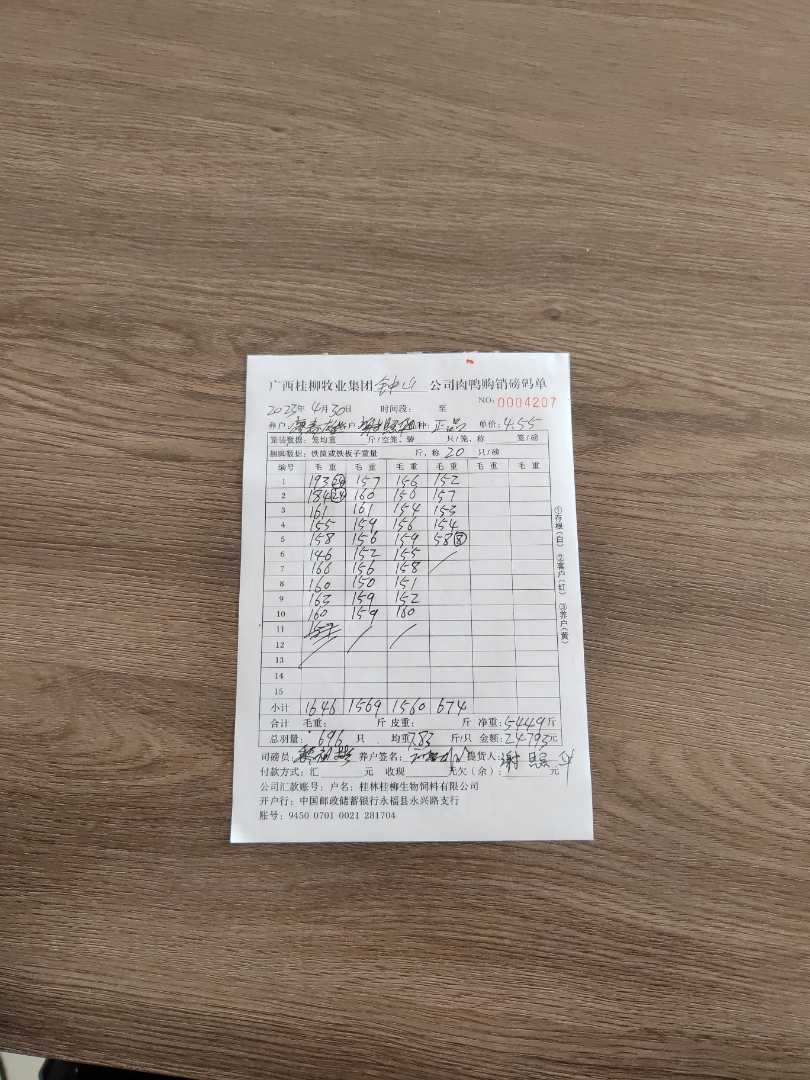 广西桂柳牧业集团 钟山 公司肉鸭购销磅码单
NO: 0004207
2023年 4月30日 时间段: 至
养户: 客户: 品种: 正品 单价: 4.55
笼装数据: 笼均重 斤/空笼、装 只/笼、称 笼/磅
捆脚数据: 铁筐或铁板子重量 斤, 称 20 只/磅
编号 毛重 毛重 毛重 毛重 毛重 毛重
1 193 24 157 156 152
2 184 24 160 150 157
3 161 161 154 153
4 155 159 156 154
5 158 156 159 58 8
6 146 152 155
7 166 156 158
8 160 150 151
9 163 159 152
10 160 159 160
11
12
13
14
15
小计 1646 1569 1560 674
合计 毛重: 斤 皮重: 斤 净重: 5449斤
总羽量: 696 只 均重 7.83 斤/只 金额: 24793元
司磅员: 养户签名: 提货人: 谢
付款方式: 汇 元 收现 元欠(余): 元
公司汇款账号: 户名: 桂林桂柳生物饲料有限公司
开户行: 中国邮政储蓄银行永福县永兴路支行
账号: 9450 0701 0021 281704
①存根(白) ②客户(红) ③养户(黄)